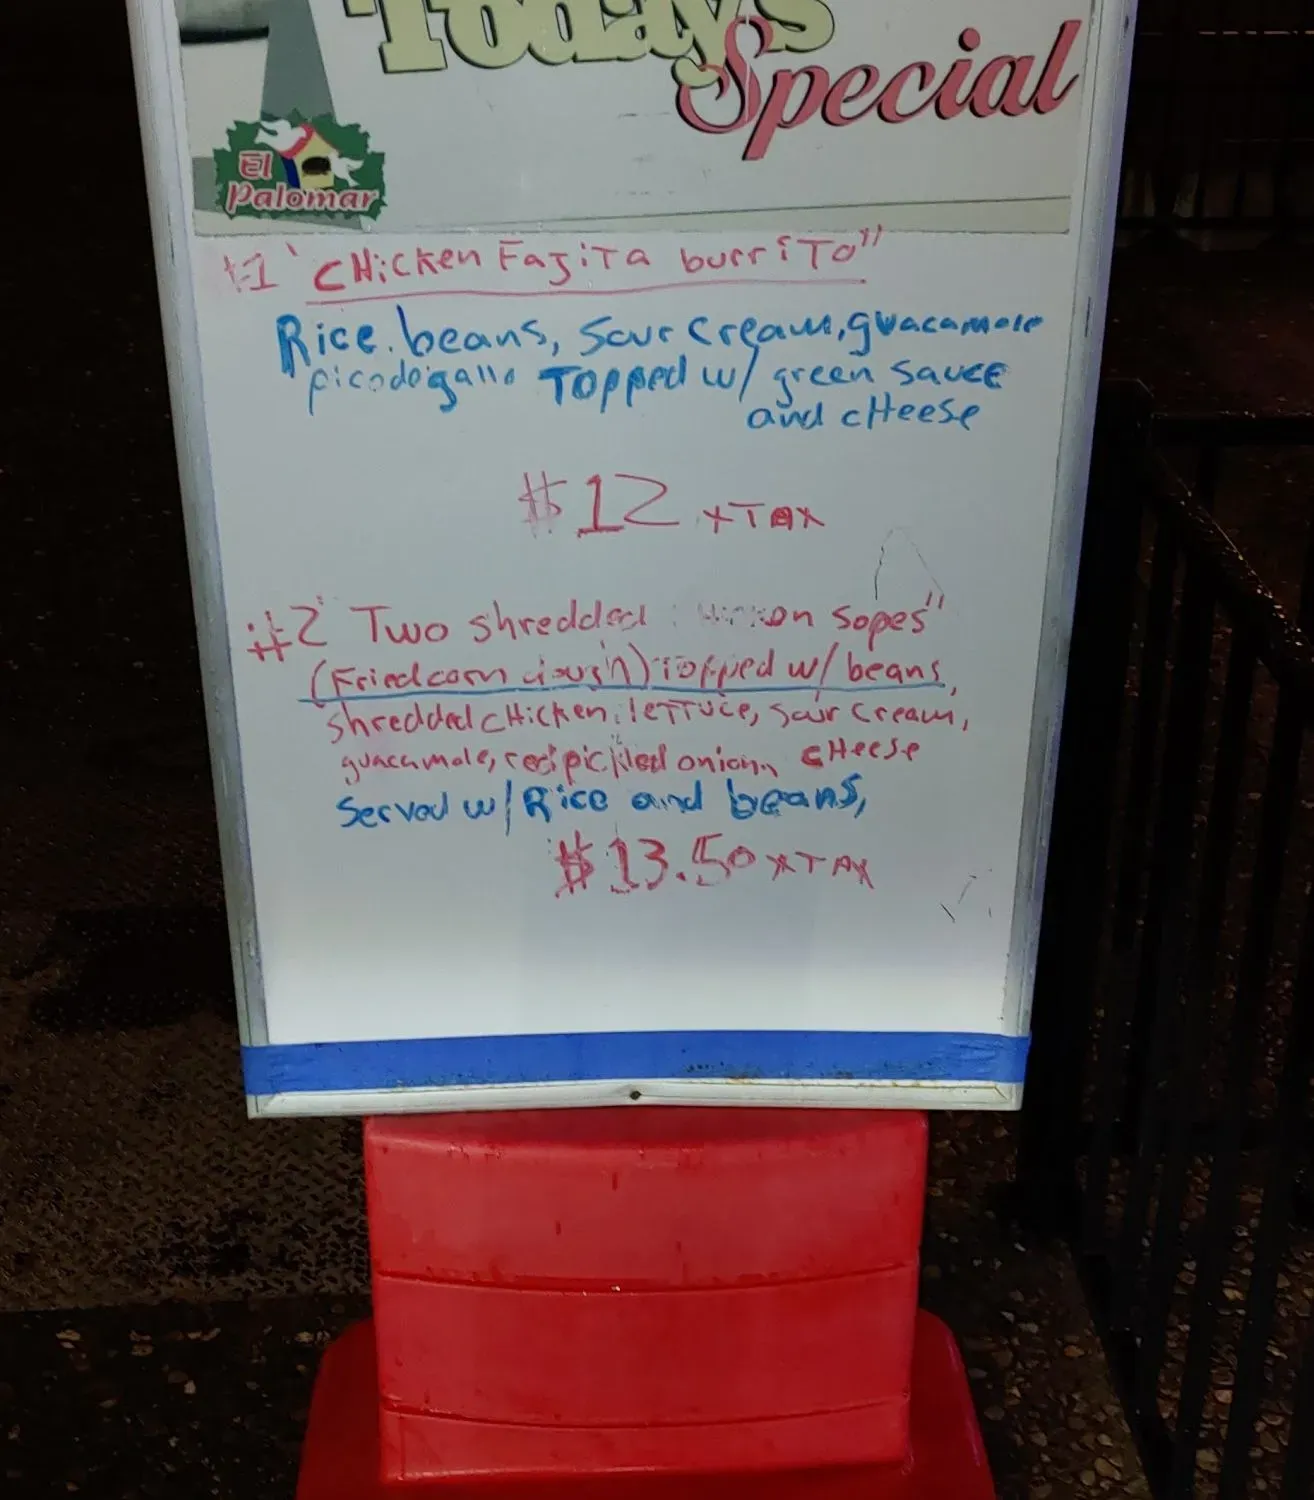 Today's
Special
El
Palomar
#1 "CHicken Fajita burriTo"
Rice. beans, Sour Cream, guacamole
picodegallo Topped w/ green sauce
and cHeese
$12 +TAX
#2 Two shredded sopes"
(Fried corn dough) Topped w/ beans,
shredded cHicken, leTTuce, sour cream,
guacamole, red pickled onion, cHeese
Served w/ Rice and beans,
$13.50 +TAX